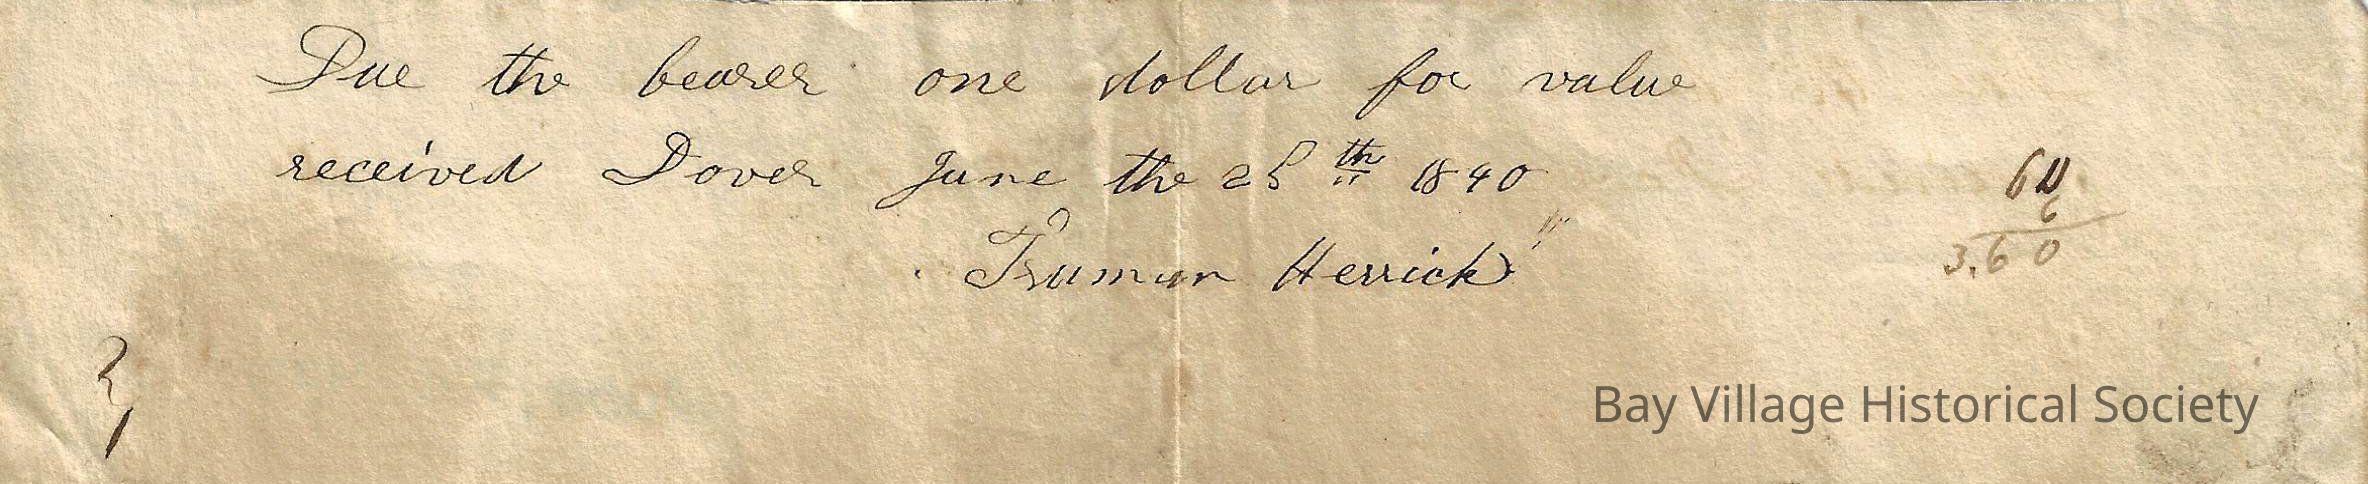 Due the bearer one dollar for value
received Dover June the 25th 1840
Truman Herrick
6
3.60
Bay Village Historical Society